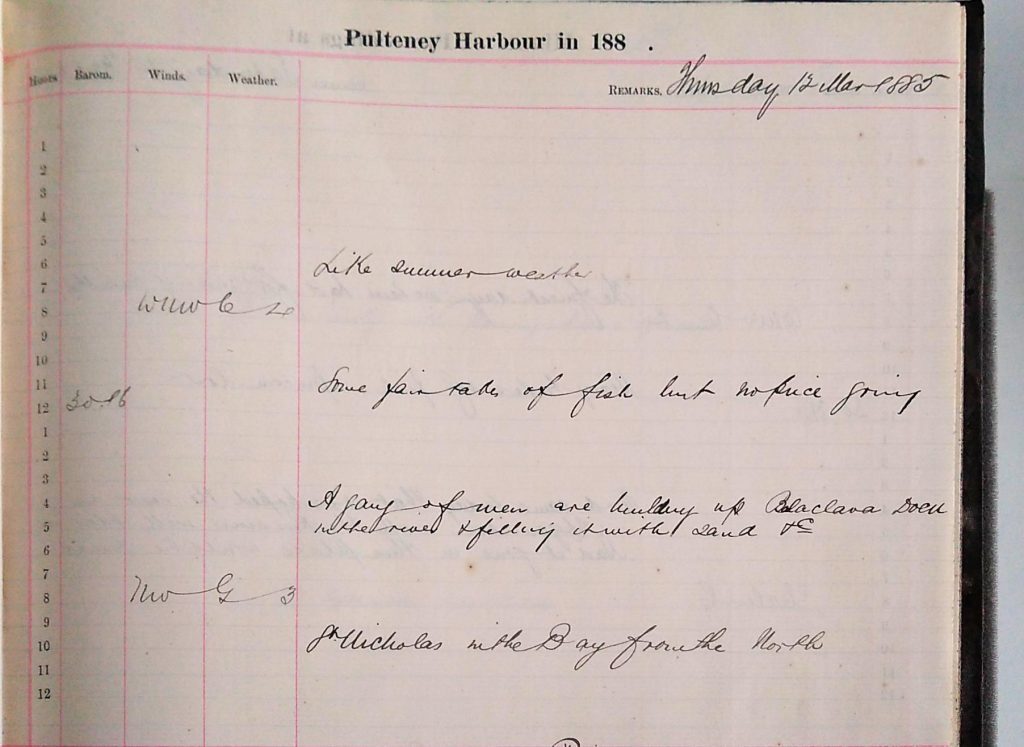 Pulteney Harbour in 188 .
Hours Barom. Winds. Weather. REMARKS. Thursday 12 Mar 1885
1
2
3
4
5
6 Like summer weather
7
8 WNW C
9
10
11
12 30.16 Some fair takes of fish but no price going
1
2
3
4 A gang of men are building up Balaclava Dock
5 in the river & filling it with Sand &c
6
7
8 NW G 3
9
10 St Nicholas in the Bay from the North
11
12